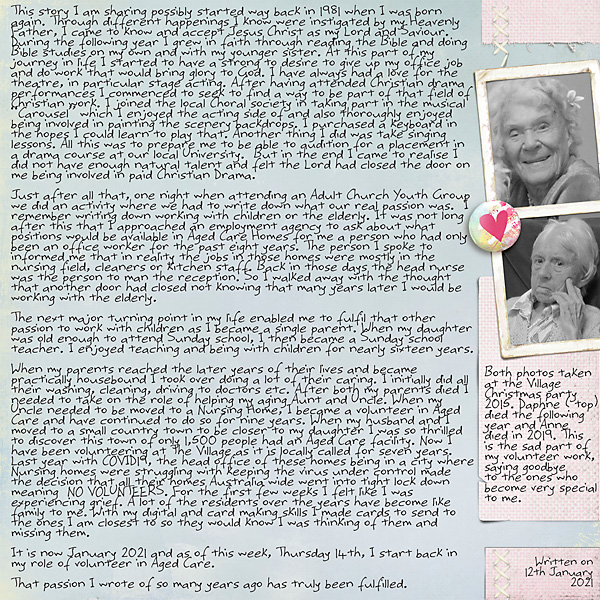 This story I am sharing possibly started way back in 1981 when I was born
again. Through different happenings I know were instigated by my Heavenly
Father, I came to know and accept Jesus Christ as my Lord and Saviour.
During the following year I grew in faith through reading the Bible and doing
Bible studies on my own and with my younger sister. At this part of my
journey in life I started to have a strong to desire to give up my office job
and do work that would bring glory to God. I have always had a love for the
theatre, in particular stage acting. After having attended Christian drama
performances I commenced to seek to find a way to be part of that field of
Christian work. I joined the local Choral society in taking part in the musical
"Carousel" which I enjoyed the acting side of and also thoroughly enjoyed
being involved in painting the scenery backdrops. I purchased a keyboard in
the hopes I could learn to play that. Another thing I did was take singing
lessons. All this was to prepare me to be able to audition for a placement in
a drama course at our local University. But in the end I came to realise I
did not have enough natural talent and felt the Lord had closed the door on
me being involved in paid Christian Drama.
Just after all that, one night when attending an Adult Church Youth Group
we did an activity where we had to write down what our real passion was. I
remember writing down working with children or the elderly. It was not long
after this that I approached an employment agency to ask about what
positions would be available in Aged Care Homes for me a person who had only
been an office worker for the past eight years. The person I spoke to
informed me that in reality the jobs in those homes were mostly in the
nursing field, cleaners or kitchen staff. Back in those days the head nurse
was the person to man the reception. So I walked away with the thought
that another door had closed not knowing that many years later I would be
working with the elderly.
The next major turning point in my life enabled me to fulfil that other
passion to work with children as I became a single parent. When my daughter
was old enough to attend Sunday school, I then became a Sunday school
teacher. I enjoyed teaching and being with children for nearly sixteen years.
When my parents reached the later years of their lives and became
practically housebound I took over doing a lot of their caring. I initially did all
their washing, cleaning, driving to doctors etc. After both my parents died I
needed to take on the role of helping my aging Aunt and Uncle. When my
Uncle needed to be moved to a Nursing Home, I became a volunteer in Aged
Care and have continued to do so for nine years. When my husband and I
moved to a small country town to be closer to my daughter I was so thrilled
to discover this town of only 1,500 people had an Aged Care facility. Now I
have been volunteering at The Village as it is locally called for seven years.
Last year with COVID19, the head office of these homes being in a city where
Nursing homes were struggling with keeping the virus under control made
the decision that all their homes Australia wide went into tight lock down
meaning NO VOLUNTEERS. For the first few weeks I felt like I was
experiencing grief. A lot of the residents over the years have become like
family to me. With my digital and card making skills I made cards to send to
the ones I am closest to so they would know I was thinking of them and
missing them.
It is now January 2021 and as of this week, Thursday 14th, I start back in
my role of volunteer in Aged Care.
That passion I wrote of so many years ago has truly been fulfilled.
Both photos taken
at the Village
Christmas party
2015. Daphne (top)
died the following
year and Anne
died in 2019. This
is the sad part of
my volunteer work,
saying goodbye
to the ones who
become very special
to me.
Written on
12th January
2021